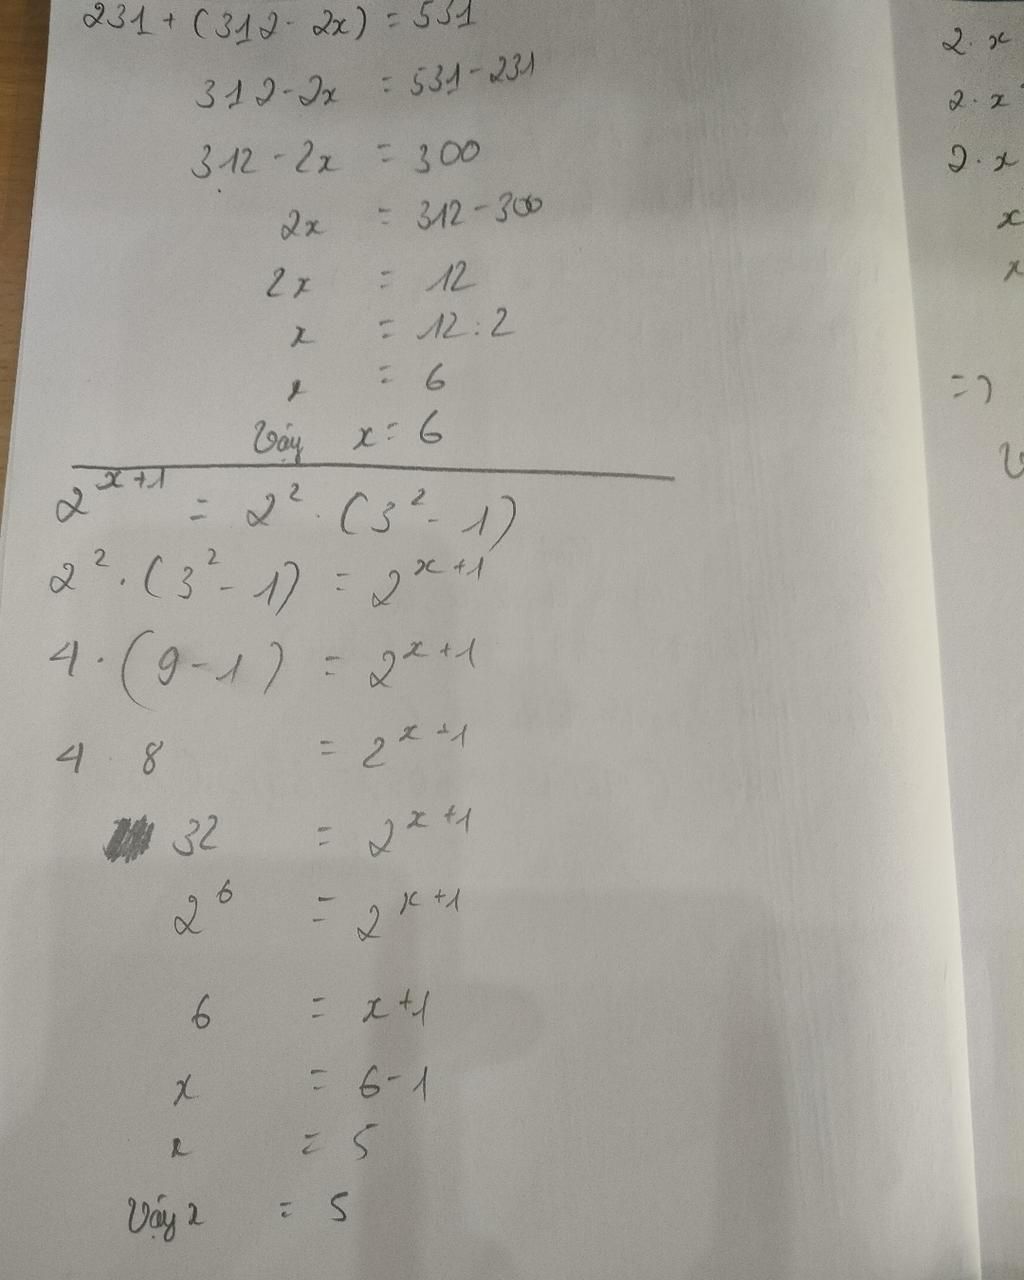 231 + (312 - 2x) = 531
312 - 2x = 531 - 231
312 - 2x = 300
2x = 312 - 300
2x = 12
x = 12 : 2
x = 6
Vậy x = 6
2^{x+1} = 2^2 . (3^2 - 1)
2^2 . (3^2 - 1) = 2^{x+1}
4 . (9 - 1) = 2^{x+1}
4 8 = 2^{x+1}
32 = 2^{x+1}
2^6 = 2^{x+1}
6 = x + 1
x = 6 - 1
x = 5
Vậy x = 5
2 . x
2 . x
2 . x
x
x
=>